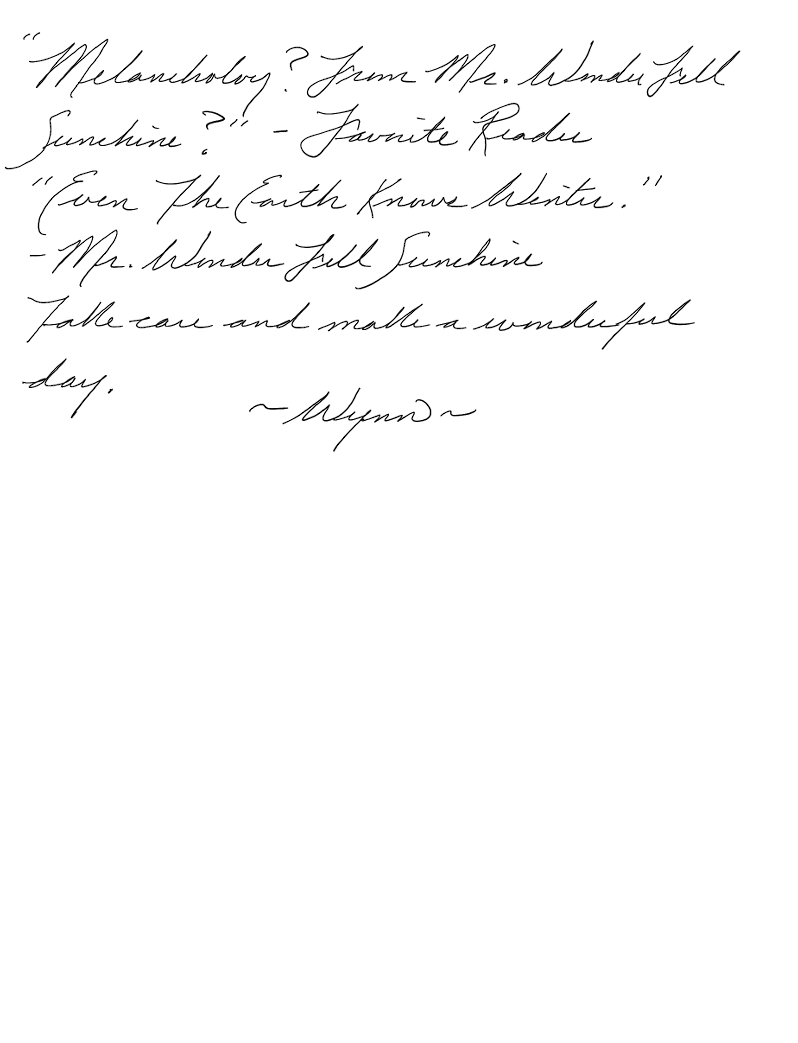 "Melancholoy? From Mr. Wonder Full
Sunshine?" - Favorite Reader
"Even The Earth Knows Winter."
- Mr. Wonder Full Sunshine
Take care and make a wonderful
day.
~Wynn~